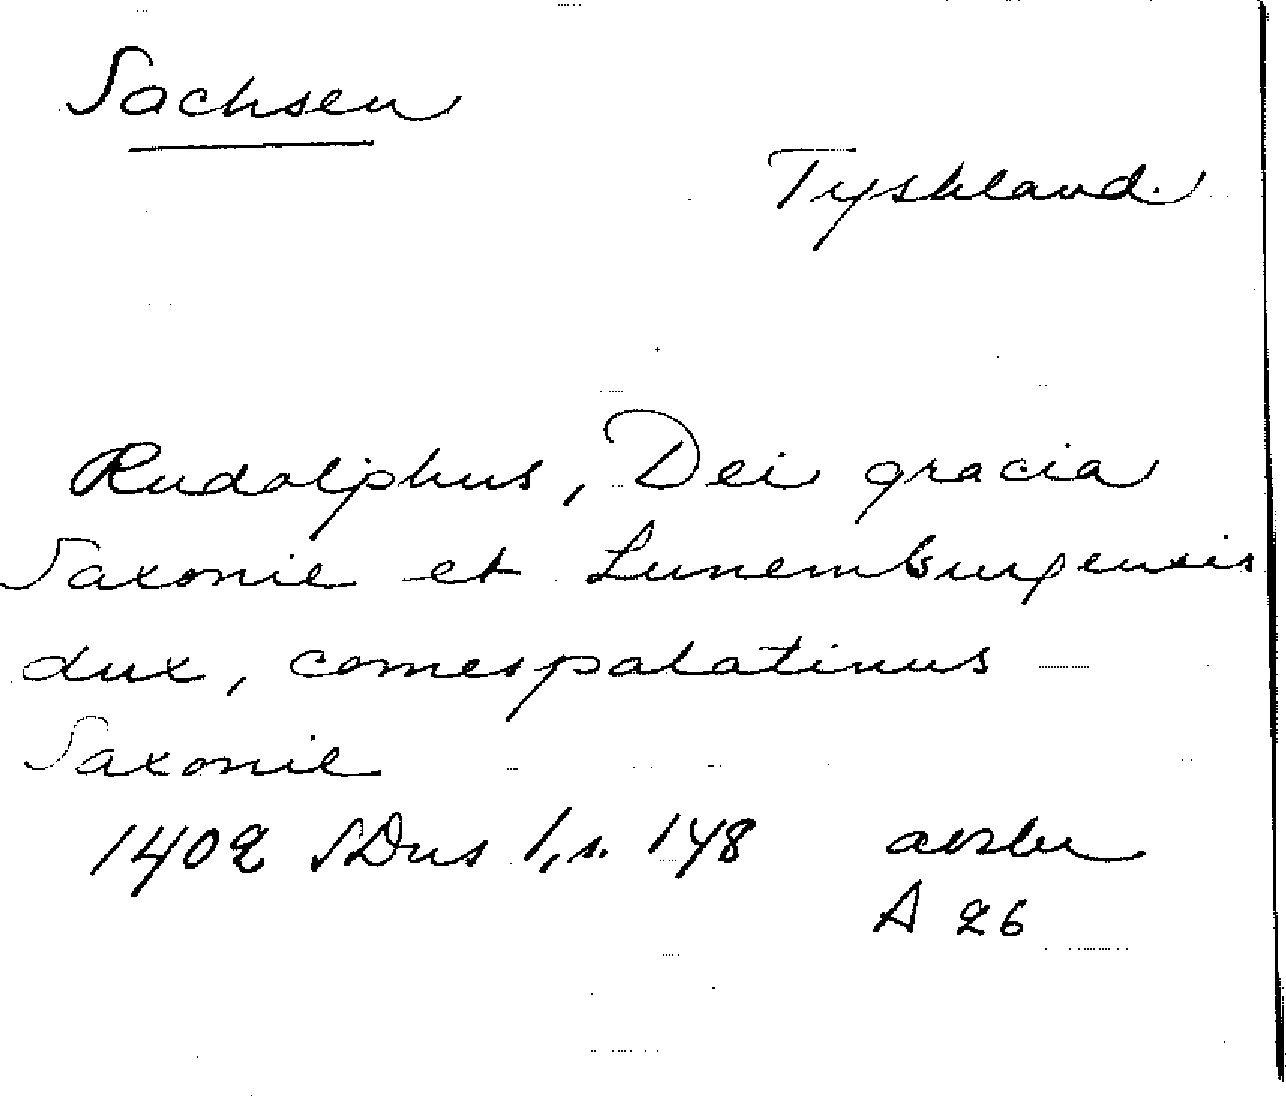 Sachsen
Tyskland
Rudolphus, Dei gracia
Saxonie et Lunemburgensis
dux, comes palatinus
Saxonie
1402 SDns 1, s. 148 avskr
A 26